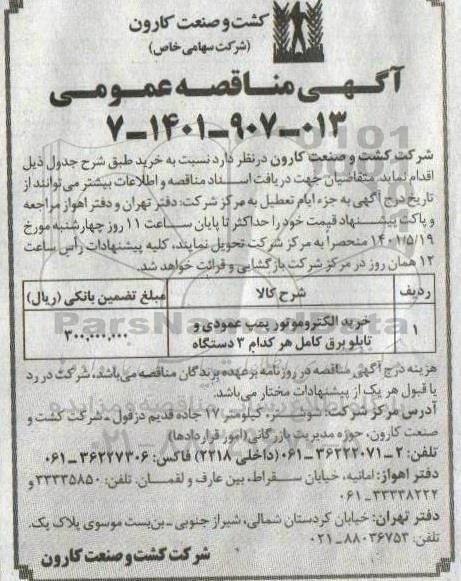 کشت و صنعت کارون
(شرکت سهامی خاص)
آگهی مناقصه عمومی
۷-۱۴۰۱-۹۰۷-۰۱۳
شرکت کشت و صنعت کارون درنظر دارد نسبت به خرید طبق شرح جدول ذیل
اقدام نماید. متقاضیان جهت دریافت اسناد مناقصه و اطلاعات بیشتر می‌توانند از
تاریخ درج آگهی به جزء ایام تعطیل به مرکز شرکت: دفتر تهران و دفتر اهواز مراجعه
و پاکت پیشنهاد قیمت خود را حداکثر تا پایان ساعت ۱۱ روز چهارشنبه مورخ
۱۴۰۱/۵/۱۹ منحصراً به مرکز شرکت تحویل نمایند، کلیه پیشنهادات راس ساعت
۱۲ همان روز در مرکز شرکت بازگشایی و قرائت خواهد شد.
ردیف شرح کالا مبلغ تضمین بانکی (ریال)
۱ خرید الکتروموتور پمپ عمودی و تابلو برق کامل هر کدام ۳ دستگاه ۳۰۰,۰۰۰,۰۰۰
هزینه درج آگهی مناقصه در روزنامه برعهده برندگان مناقصه می‌باشد، شرکت در رد
یا قبول هر یک از پیشنهادات مختار می‌باشد.
آدرس مرکز شرکت: شوشتر، کیلومتر ۱۷ جاده قدیم دزفول - شرکت کشت و
صنعت کارون، حوزه مدیریت بازرگانی (امور قراردادها)
تلفن: ۲-۳۶۲۲۲۰۷۱-۰۶۱ (داخلی ۲۲۱۸) فاکس: ۳۶۲۲۷۳۰۶-۰۶۱
دفتر اهواز: امانیه، خیابان سقراط، بین عارف و لقمان. تلفن: ۳۳۳۳۵۸۵۰ و
۳۳۳۳۸۲۲۲-۰۶۱
دفتر تهران: خیابان کردستان شمالی، شیراز جنوبی - بن‌بست موسوی پلاک یک.
تلفن: ۸۸۰۳۶۷۵۳-۰۲۱
شرکت کشت و صنعت کارون